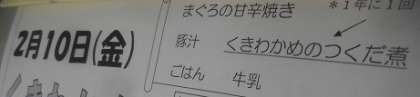 ＊1年に1回
まぐろの甘辛焼き
2月10日(金)
豚汁 くきわかめのつくだ煮
ごはん 牛乳